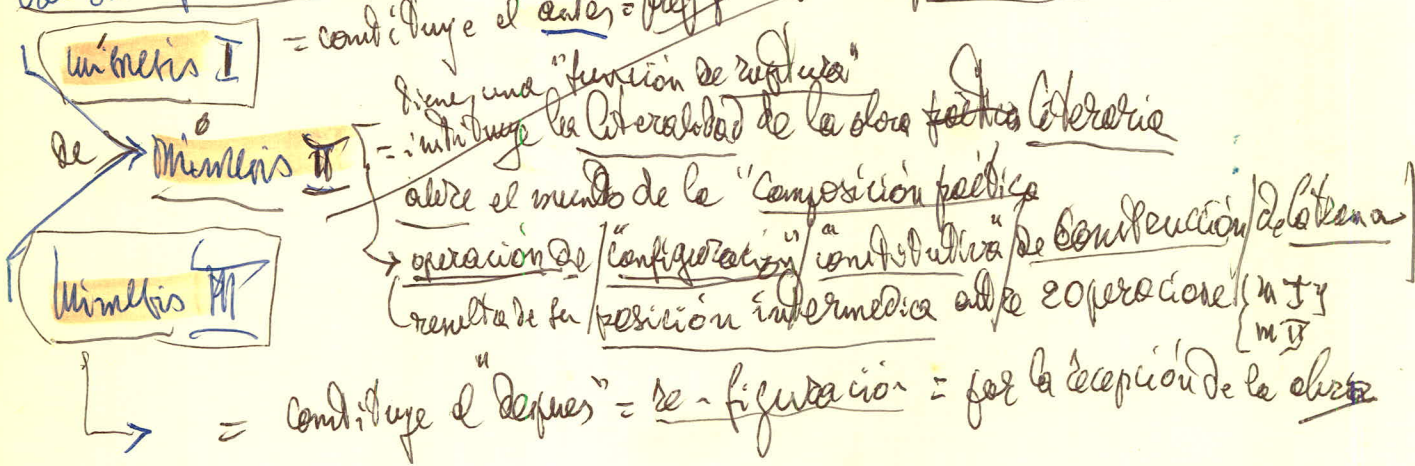 mímesis I = constituye el antes =
tiene una "función de ruptura"
de mímesis II = instituye la literalidad de la obra poética literaria
abre el mundo de la "composición poética
operación de "configuración" "constitutiva" de construcción de la trama
mímesis III resulta de su posición intermedia entre 2 operaciones (m I y
m III
= constituye el "después" = re-figuración = por la recepción de la obra